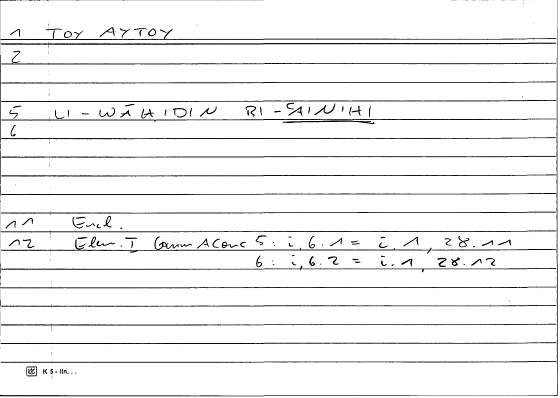 1 ΤΟΥ ΑΥΤΟΥ
2
5 LI-WĀḤIDIN BI-ʿAINIHI
6
11 Eucl.
12 Elem. I Comm A Conc 5: i, 6.1 = i. 1, 28.11
6: i, 6.2 = i. 1, 28.12
K 5 - lin...